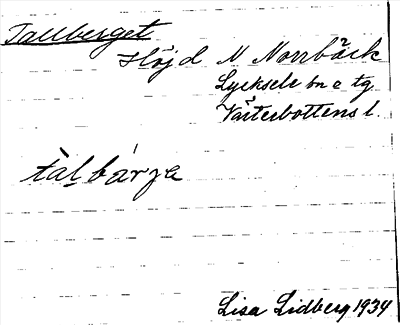 Tallberget
Höjd N Norrbäck
Lycksele sn o tg
Västerbottens l.
tàl bárja
Lisa Lidberg 1934